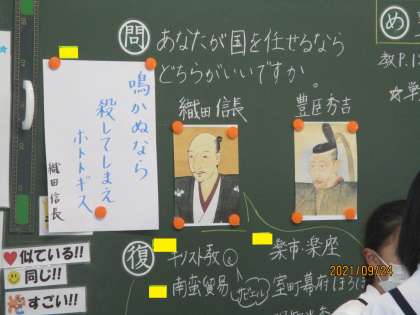 問 あなたが国を任せるなら
どちらがいいですか。
め
教P.1
☆戦
織田信長
豊臣秀吉
鳴かぬなら
殺してしまえ
ホトトギス
織田信長
復 キリスト教
楽市・楽座
南蛮貿易
ザビエル
室町幕府ほろぼ
似ている!!
同じ!!
すごい!!
2021/09/24